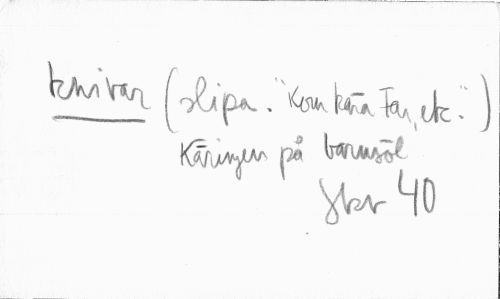 knivar (slipa. "Kom kära Far, etc.")
Käringen på barnsöl
Skr 40